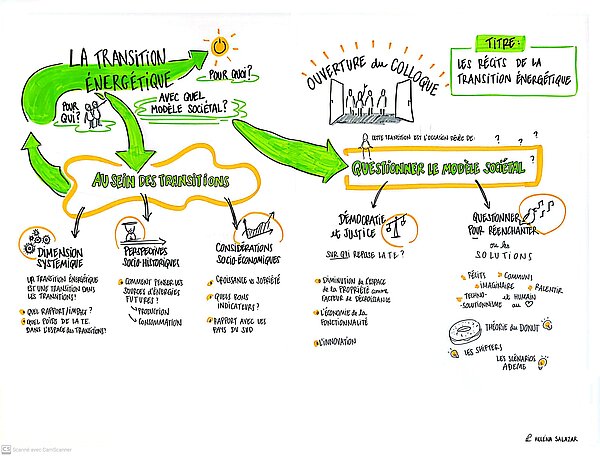 LA TRANSITION
ÉNERGÉTIQUE
POUR QUOI?
POUR
QUI?
AVEC QUEL
MODÈLE SOCIÉTAL?
OUVERTURE du COLLOQUE
TITRE:
LES RÉCITS DE LA
TRANSITION ÉNERGÉTIQUE
AU SEIN DES TRANSITIONS
CETTE TRANSITION EST L'OCCASION RÊVÉE DE:
? ? ?
QUESTIONNER LE MODÈLE SOCIÉTAL ?
DIMENSION
SYSTÉMIQUE
LA TRANSITION ÉNERGÉTIQUE
EST-ELLE UNE TRANSITION DANS
LES TRANSITIONS?
QUEL RAPPORT/IMPACT?
QUEL POIDS DE LA T.E.
DANS L'ESPACE DES TRANSITIONS?
PERSPECTIVES
SOCIO-HISTORIQUES
COMMENT PENSER LES
SOURCES D'ÉNERGIES
FUTURES?
PRODUCTION
CONSOMMATION
CONSIDÉRATIONS
SOCIO-ÉCONOMIQUES
CROISSANCE VS SOBRIÉTÉ
QUELS BONS
INDICATEURS?
RAPPORT AVEC LES
PAYS DU SUD
DÉMOCRATIE
et JUSTICE
SUR QUI REPOSE LA T.E?
DIMINUTION DE L'ESPACE
DE LA PROPRIÉTÉ comme
FACTEUR DE DÉCROISSANCE
L'ÉCONOMIE DE LA
FONCTIONNALITÉ
L'INNOVATION
QUESTIONNER
POUR RÉENCHANTER
ou les
SOLUTIONS
RÉCITS
COMMUN
IMAGINAIRE
RALENTIR
TECHNO-
SOLUTIONNISME
et HUMAIN
au
THÉORIE du DONUT
LES SHIFTERS
LES SCÉNARIOS
ADEME
HELENA SALAZAR
CS Scanné avec CamScanner